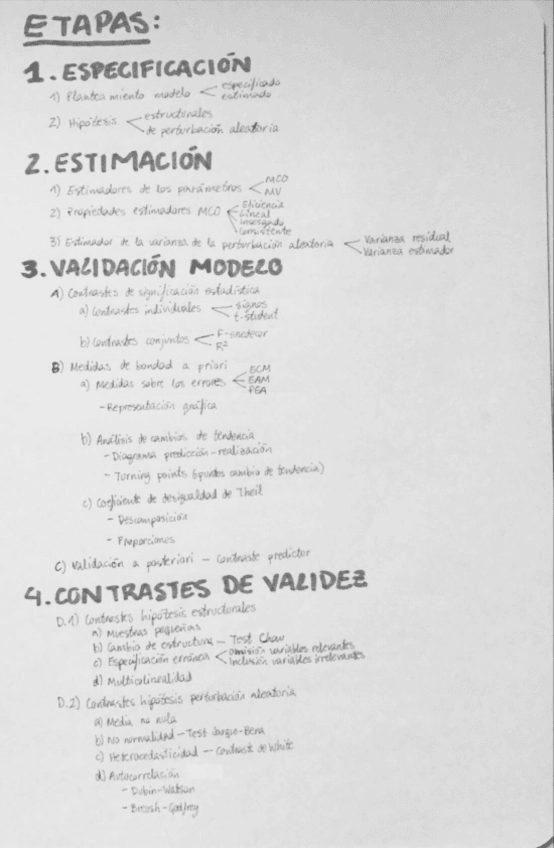 ETAPAS:
1. ESPECIFICACIÓN
1) Planteamiento modelo < especificado
estimado
2) Hipótesis < estructurales
de perturbación aleatoria
2. ESTIMACIÓN
1) Estimadores de los parámetros < MCO
MV
2) Propiedades estimadores MCO < Eficiencia
Lineal
Insesgado
Consistente
3) Estimador de la varianza de la perturbación aleatoria < Varianza residual
Varianza estimador
3. VALIDACIÓN MODELO
A) Contrastes de significación estadística
a) Contrastes individuales < signos
t-student
b) Contrastes conjuntos < F-snedecor
R²
B) Medidas de bondad a priori
a) Medidas sobre los errores < ECM
EAM
PEA
- Representación gráfica
b) Análisis de cambios de tendencia
- Diagrama predicción-realización
- Turning points (puntos cambio de tendencia)
c) Coeficiente de desigualdad de Theil
- Descomposición
- Proporciones
C) Validación a posteriori - Contraste predictor
4. CONTRASTES DE VALIDEZ
D.1) Contrastes hipótesis estructurales
a) Muestras pequeñas
b) Cambio de estructura - Test Chow
c) Especificación errónea < omisión variables relevantes
Inclusión variables irrelevantes
d) Multicolinealidad
D.2) Contrastes hipótesis perturbación aleatoria
a) Media no nula
b) No normalidad - Test Jarque-Bera
c) Heterocedasticidad - Contraste de White
d) Autocorrelación
- Dubin-Watson
- Breush-Godfrey